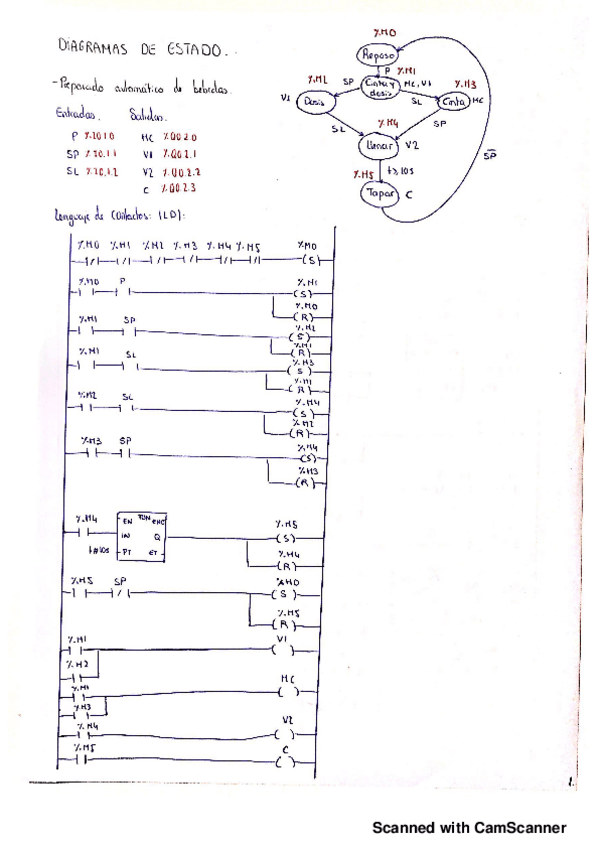 DIAGRAMAS DE ESTADO.
- Preparado automático de bebidas.
Entradas. Salidas.
P %I0.1.0 MC %Q0.2.0
SP %I0.1.1 V1 %Q0.2.1
SL %I0.1.2 V2 %Q0.2.2
C %Q0.2.3
%M0
Reposo
P %M1
%M2 SP Cinta y dosis MC, V1 %M3
V1 Dosis SL Cinta MC
SL %M4 SP
llenar V2
%M5 t≥10s
Tapar C
SP
Lenguaje de Contactos: (LD):
%M0 %M1 %M2 %M3 %M4 %M5 %M0
(S)
%M0 P %M1
(S)
%M0
(R)
%M1 SP %M2
(S)
%M1
(R)
%M1 SL %M3
(S)
%M1
(R)
%M2 SL %M4
(S)
%M2
(R)
%M3 SP %M4
(S)
%M3
(R)
%M4 EN TON ENO %M5
IN Q (S)
t#10s PT ET %M4
(R)
%M5 SP %M0
(S)
%M5
(R)
%M1 V1
%M2
%M1 MC
%M3
%M4 V2
%M5 C
1.
Scanned with CamScanner